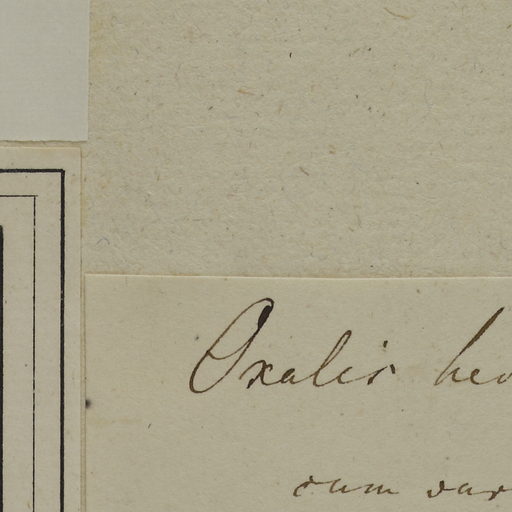 Oxalis
cum var